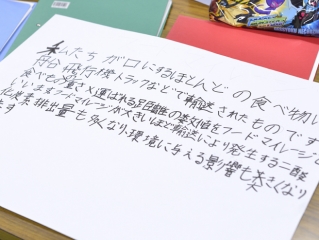 私たちが口にするほとんどの食べ物は
飛行機トラックなどで輸送されたものです
食べもの重さ×運ばれる距離の数値をフードマイレージと
いいますフードマイレージが大きいほど輸送により発生する二酸
化炭素排出量も多くなり環境に与える影響も大きくなり
ます